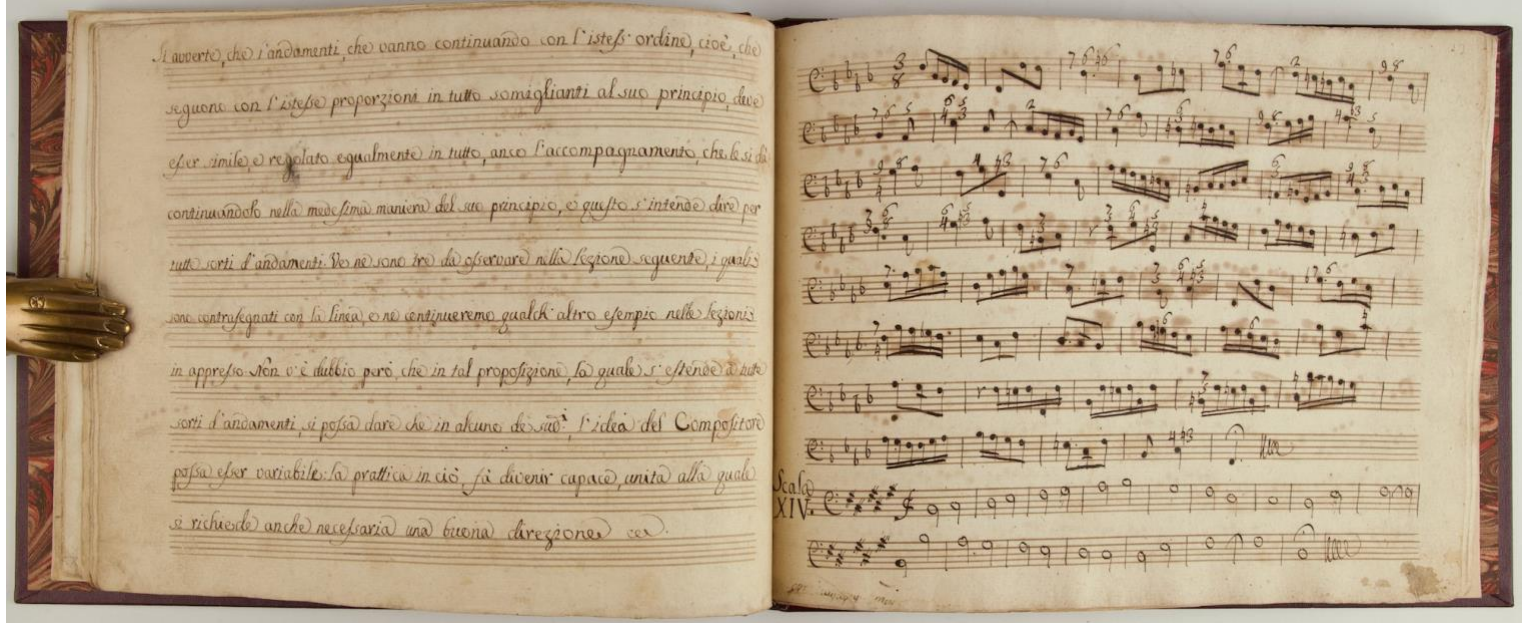 Si avverte, che i'andamenti, che vanno continuando con l'istess' ordine, cioè, che
seguono con l'istesse proporzioni in tutto somiglianti al suo principio, dive
esser simile, e regolato egualmente in tutto, anco l'accompagnamento, che le si dà
continuandolo nella medesima maniera del suo principio, e questo s'intende dire per
tutte sorti d'andamenti. Ve ne sono tre da osservare nella lezione seguente, i quali
sono contrasegnati con la linea, e ne continueremo qualch' altro esempio nelle lezioni
in appresso. Non v'è dubbio però, che in tal proposizione, la quale s'estende a tutte
sorti d'andamenti, si possa dare che in alcuno de suoi, l'idea del Compositore
possa esser variabile: la prattica in ciò, fà divenir capace, unita alla quale
si richiede anche necessaria una buona direzione
Scala
XIV.